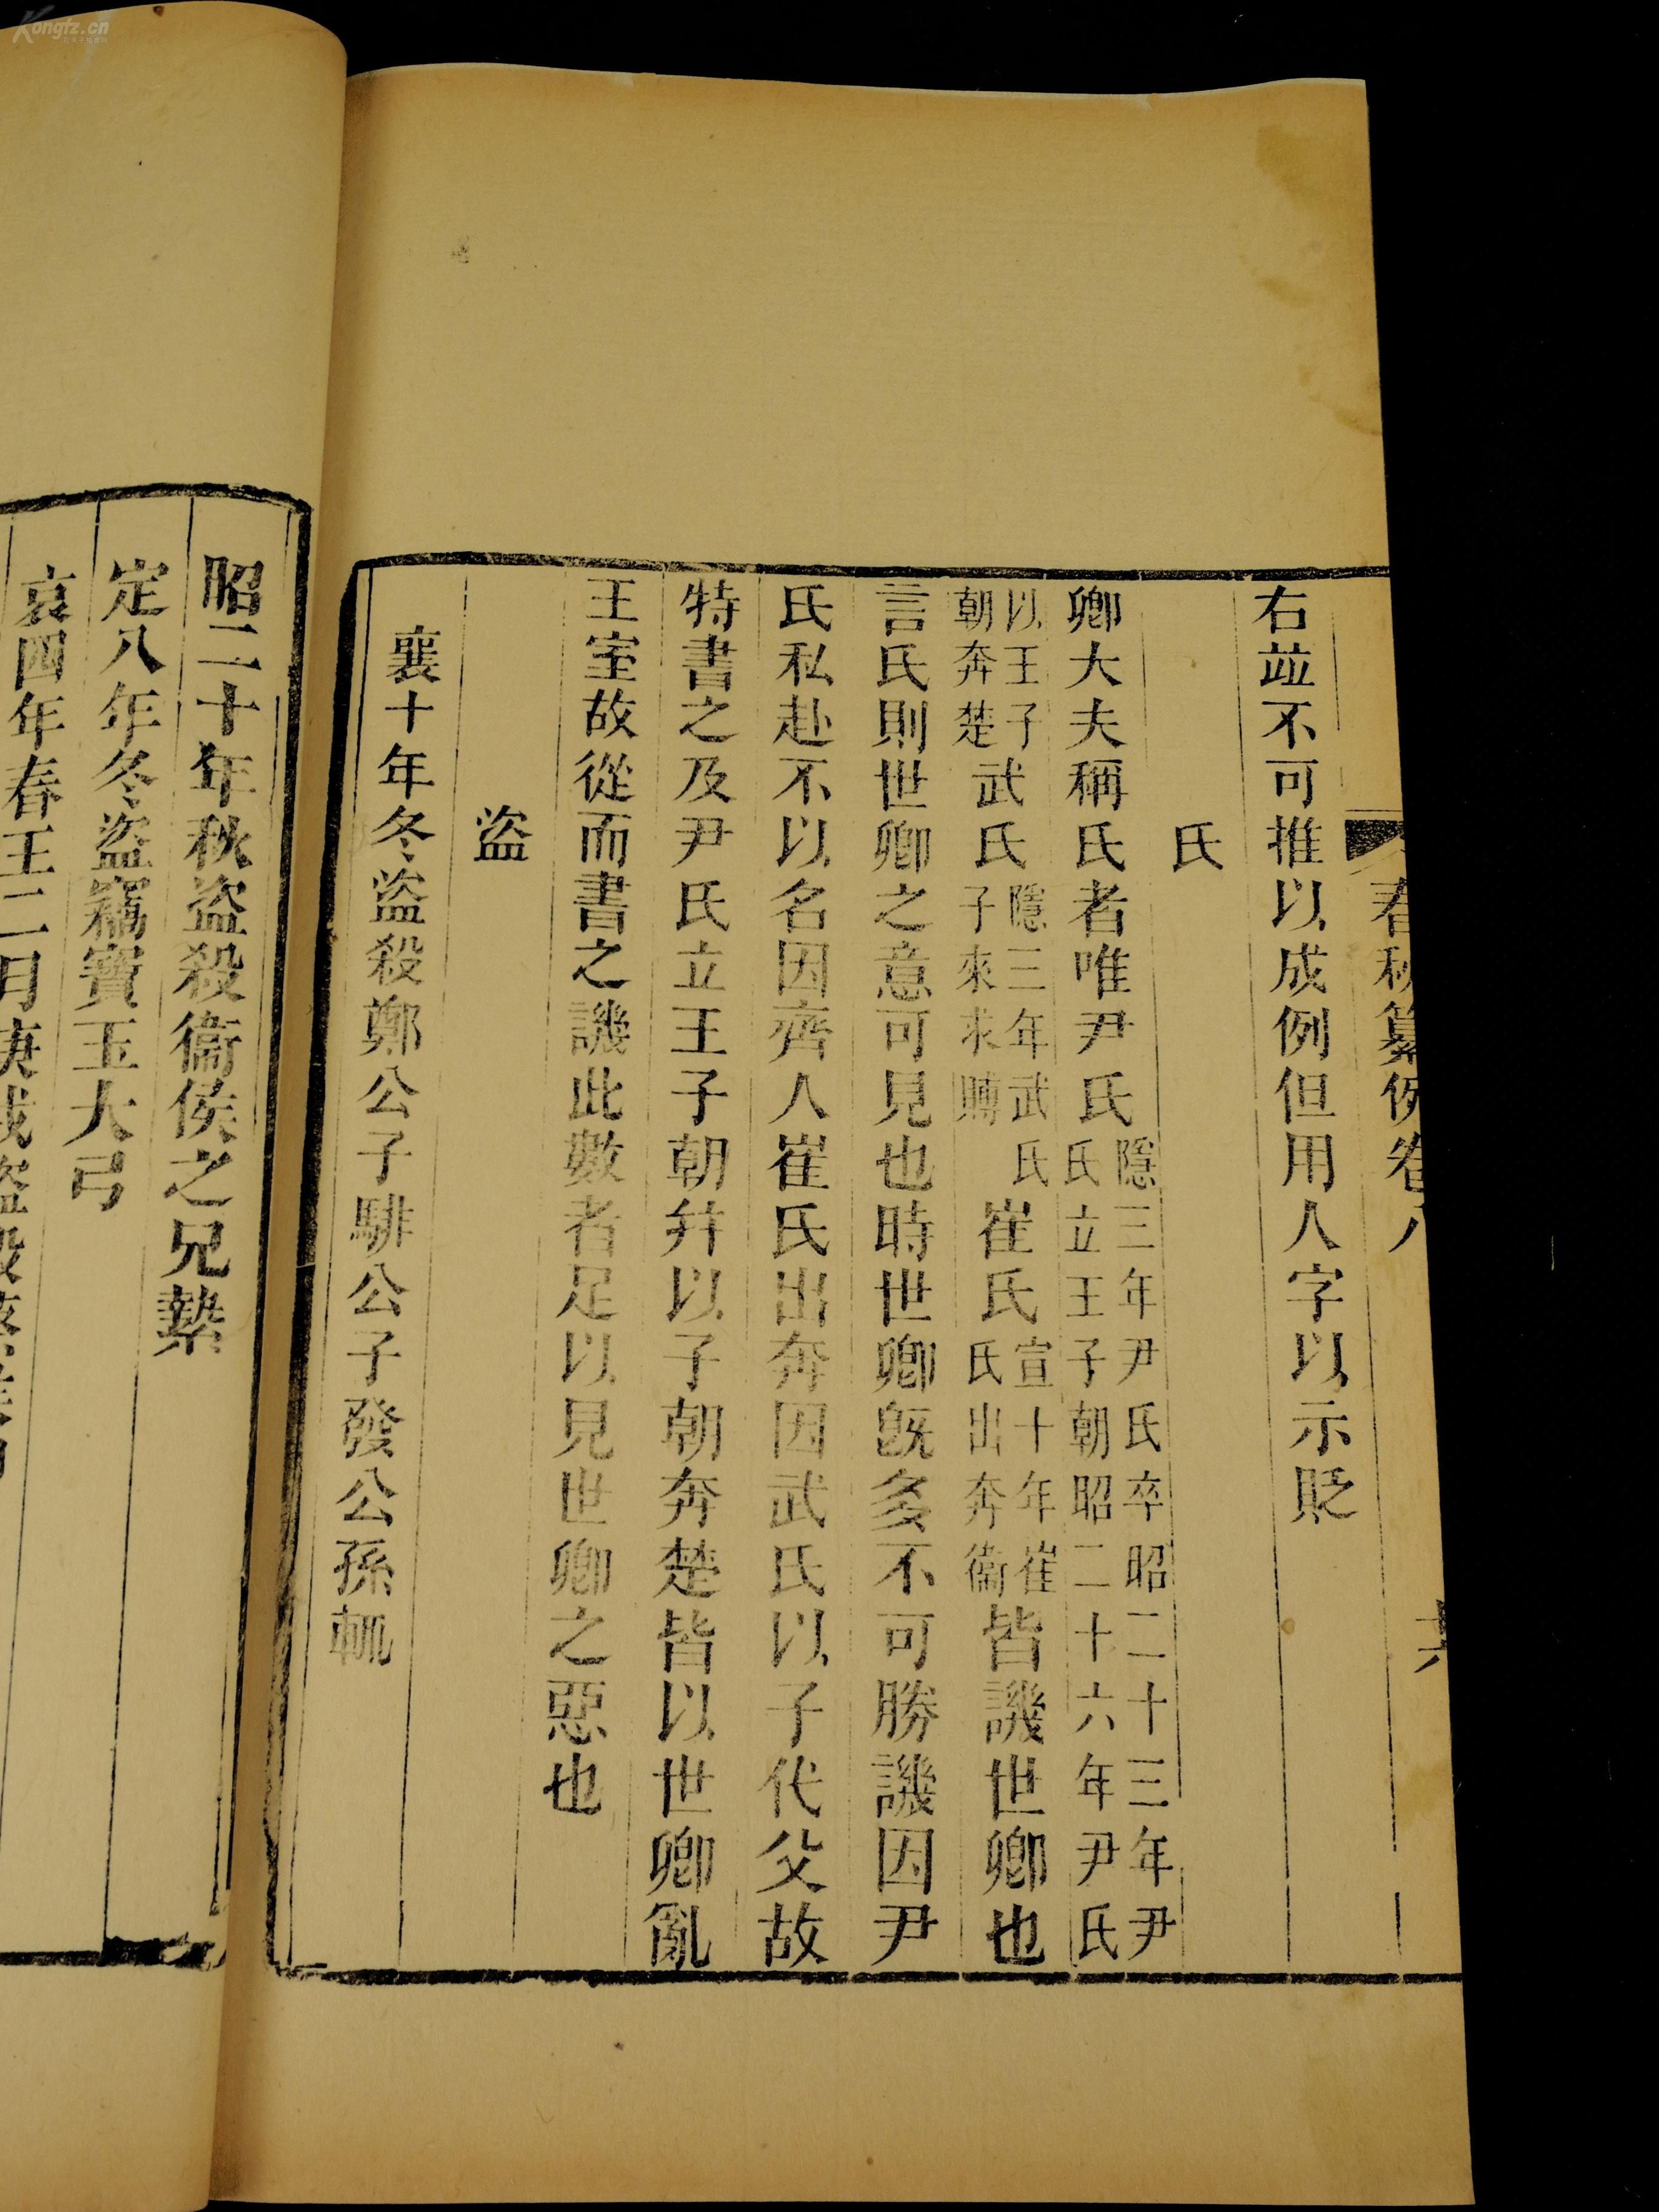 春秋纂例卷八
右竝不可推以成例但用人字以示貶
氏
卿大夫稱氏者唯尹氏隱三年尹氏卒昭二十三年尹氏立王子朝昭二十六年尹氏
以王子朝奔楚武氏隱三年武氏子來求賻崔氏宣十年崔氏出奔衞皆譏世卿也
言氏則世卿之意可見也時世卿旣多不可勝譏因尹
氏私赴不以名因齊人崔氏出奔因武氏以子代父故
特書之及尹氏立王子朝幷以子朝奔楚皆以世卿亂
王室故從而書之譏此數者足以見世卿之惡也
盜
襄十年冬盜殺鄭公子騑公子發公孫輒
昭二十年秋盜殺衞侯之兄縶
定八年冬盜竊寶玉大弓
哀四年春王二月庚戌盜殺蔡
Kongfz.cn